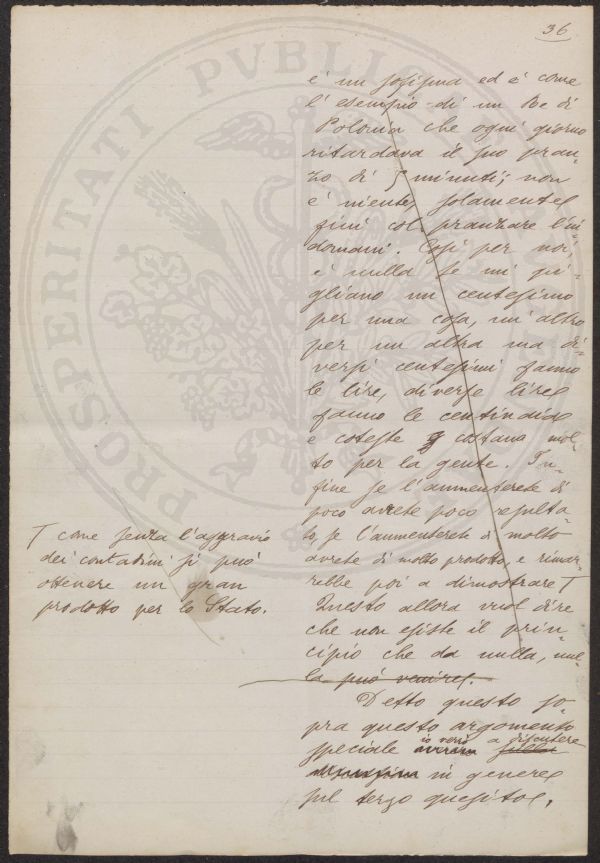 36
è un sofisma ed è come
l'esempio di un Re di
Polonia che ogni giorno
ritardava il suo pran-
zo di 5 minuti; non
è niente, solamente
finì col pranzare l'in-
domani. Così per noi,
è nulla se mi pi-
gliano un centesimo
per una cosa, un altro
per un altra ma di-
versi centesimi fanno
le lire, diverse lire
fanno le centinaia
e coteste costano mol-
to per la gente. In-
fine se l'aumenterete di
poco avrete poco risulta-
to, se l'aumenterete di molto
avrete di molto prodotto, e rimar-
rebbe poi a dimostrare T
T come senza l'aggravio
dei contadini si può
ottenere un gran
prodotto per lo Stato.
Questo allora vuol dire
che non esiste il prin-
cipio che da nulla, nul-
la può venire.
Detto questo so-
pra questo argomento
speciale io verrò a discutere
in genere
sul terzo quesito.
PROSPERITATI PVBLICAE